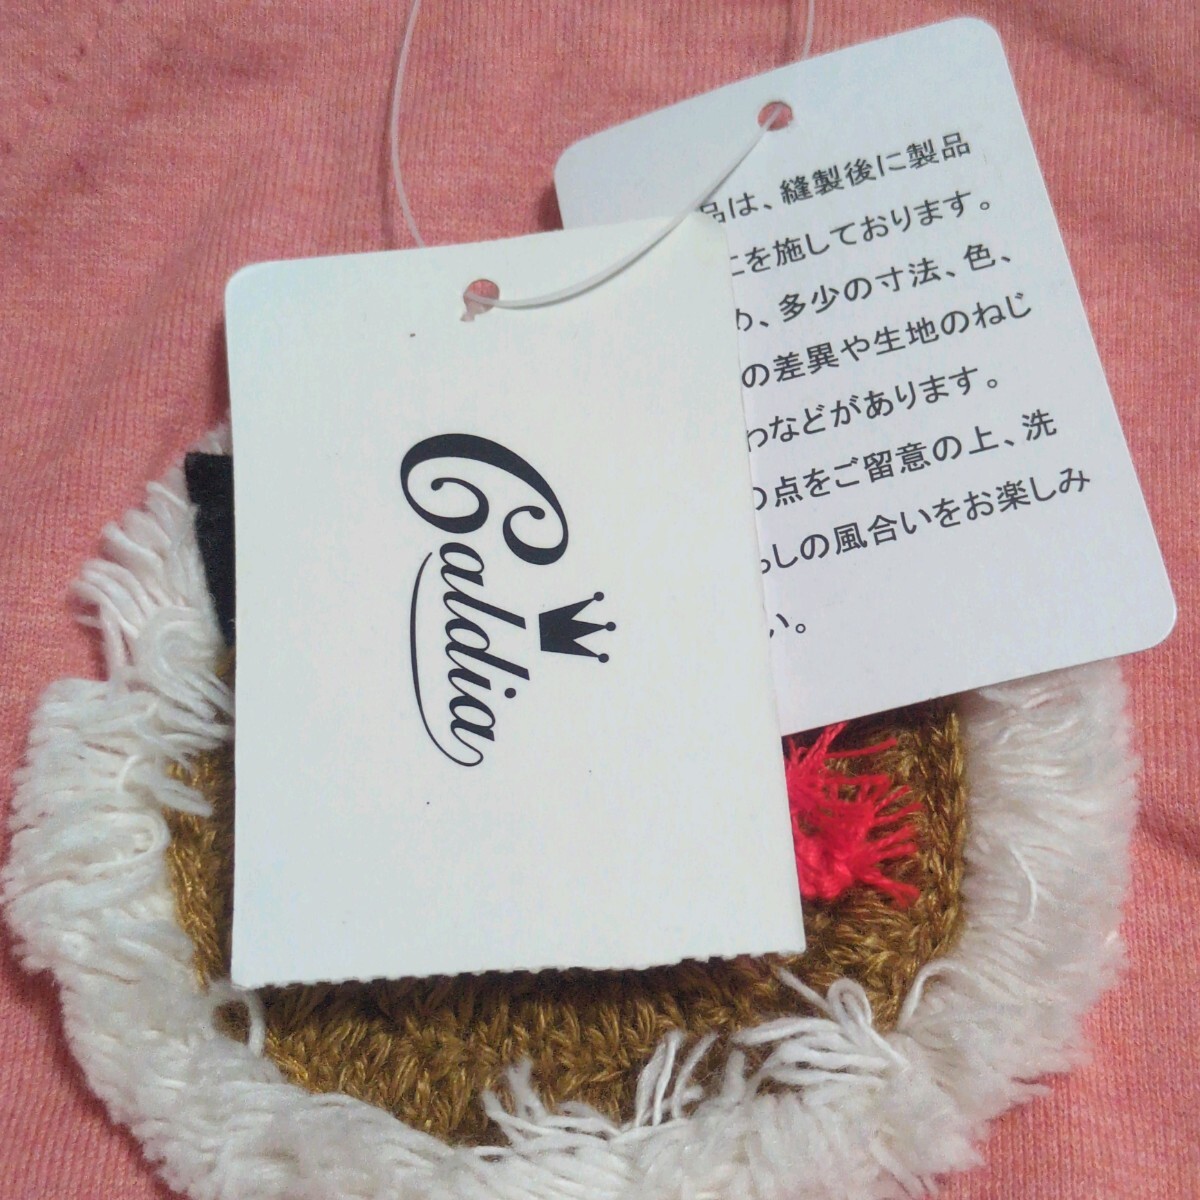 Caldia
品は、縫製後に製品
を施しております。
め、多少の寸法、色、
の差異や生地のねじ
わなどがあります。
の点をご留意の上、洗
らしの風合いをお楽しみ
い。